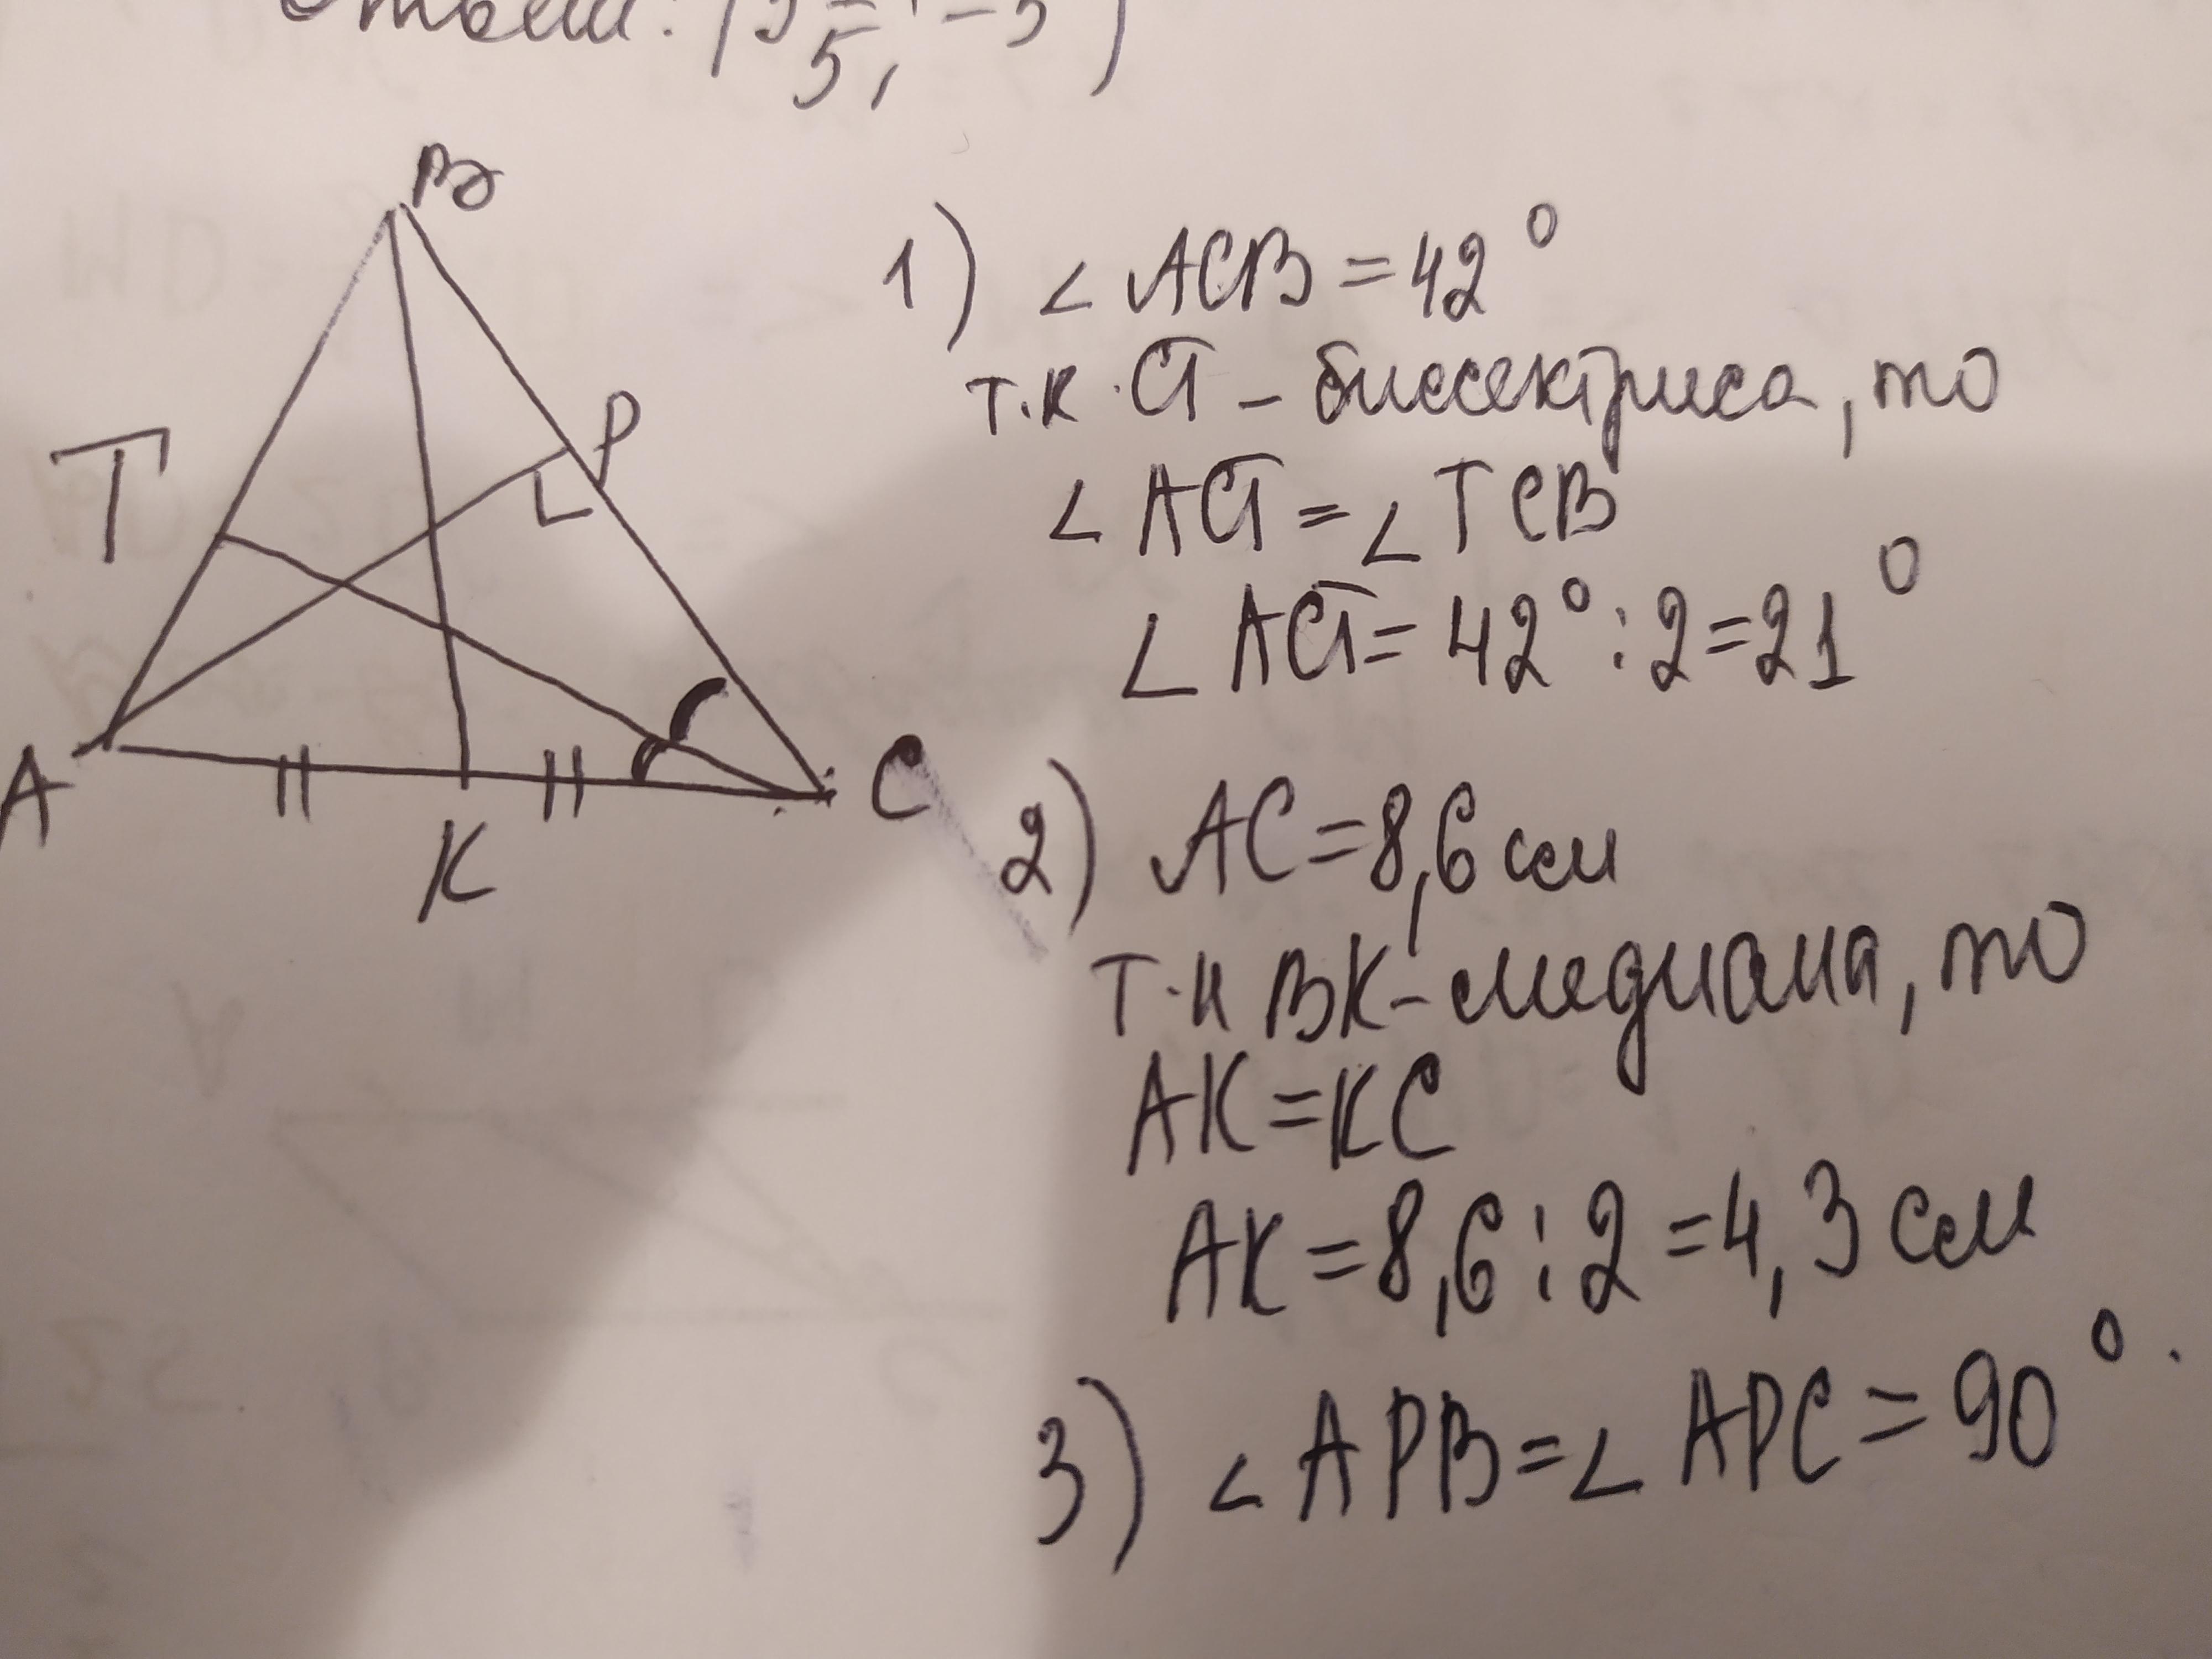 Ответ:
5,
B
P
T
A
K
C
1) ∠ ACB = 42°
т.к. CT - биссектриса, то
∠ ACT = ∠ TCB
∠ ACT = 42° : 2 = 21°
2) AC = 8,6 см
Т.к BK - медиана, то
AK = KC
AK = 8,6 : 2 = 4,3 см
3) ∠ APB = ∠ APC = 90°.